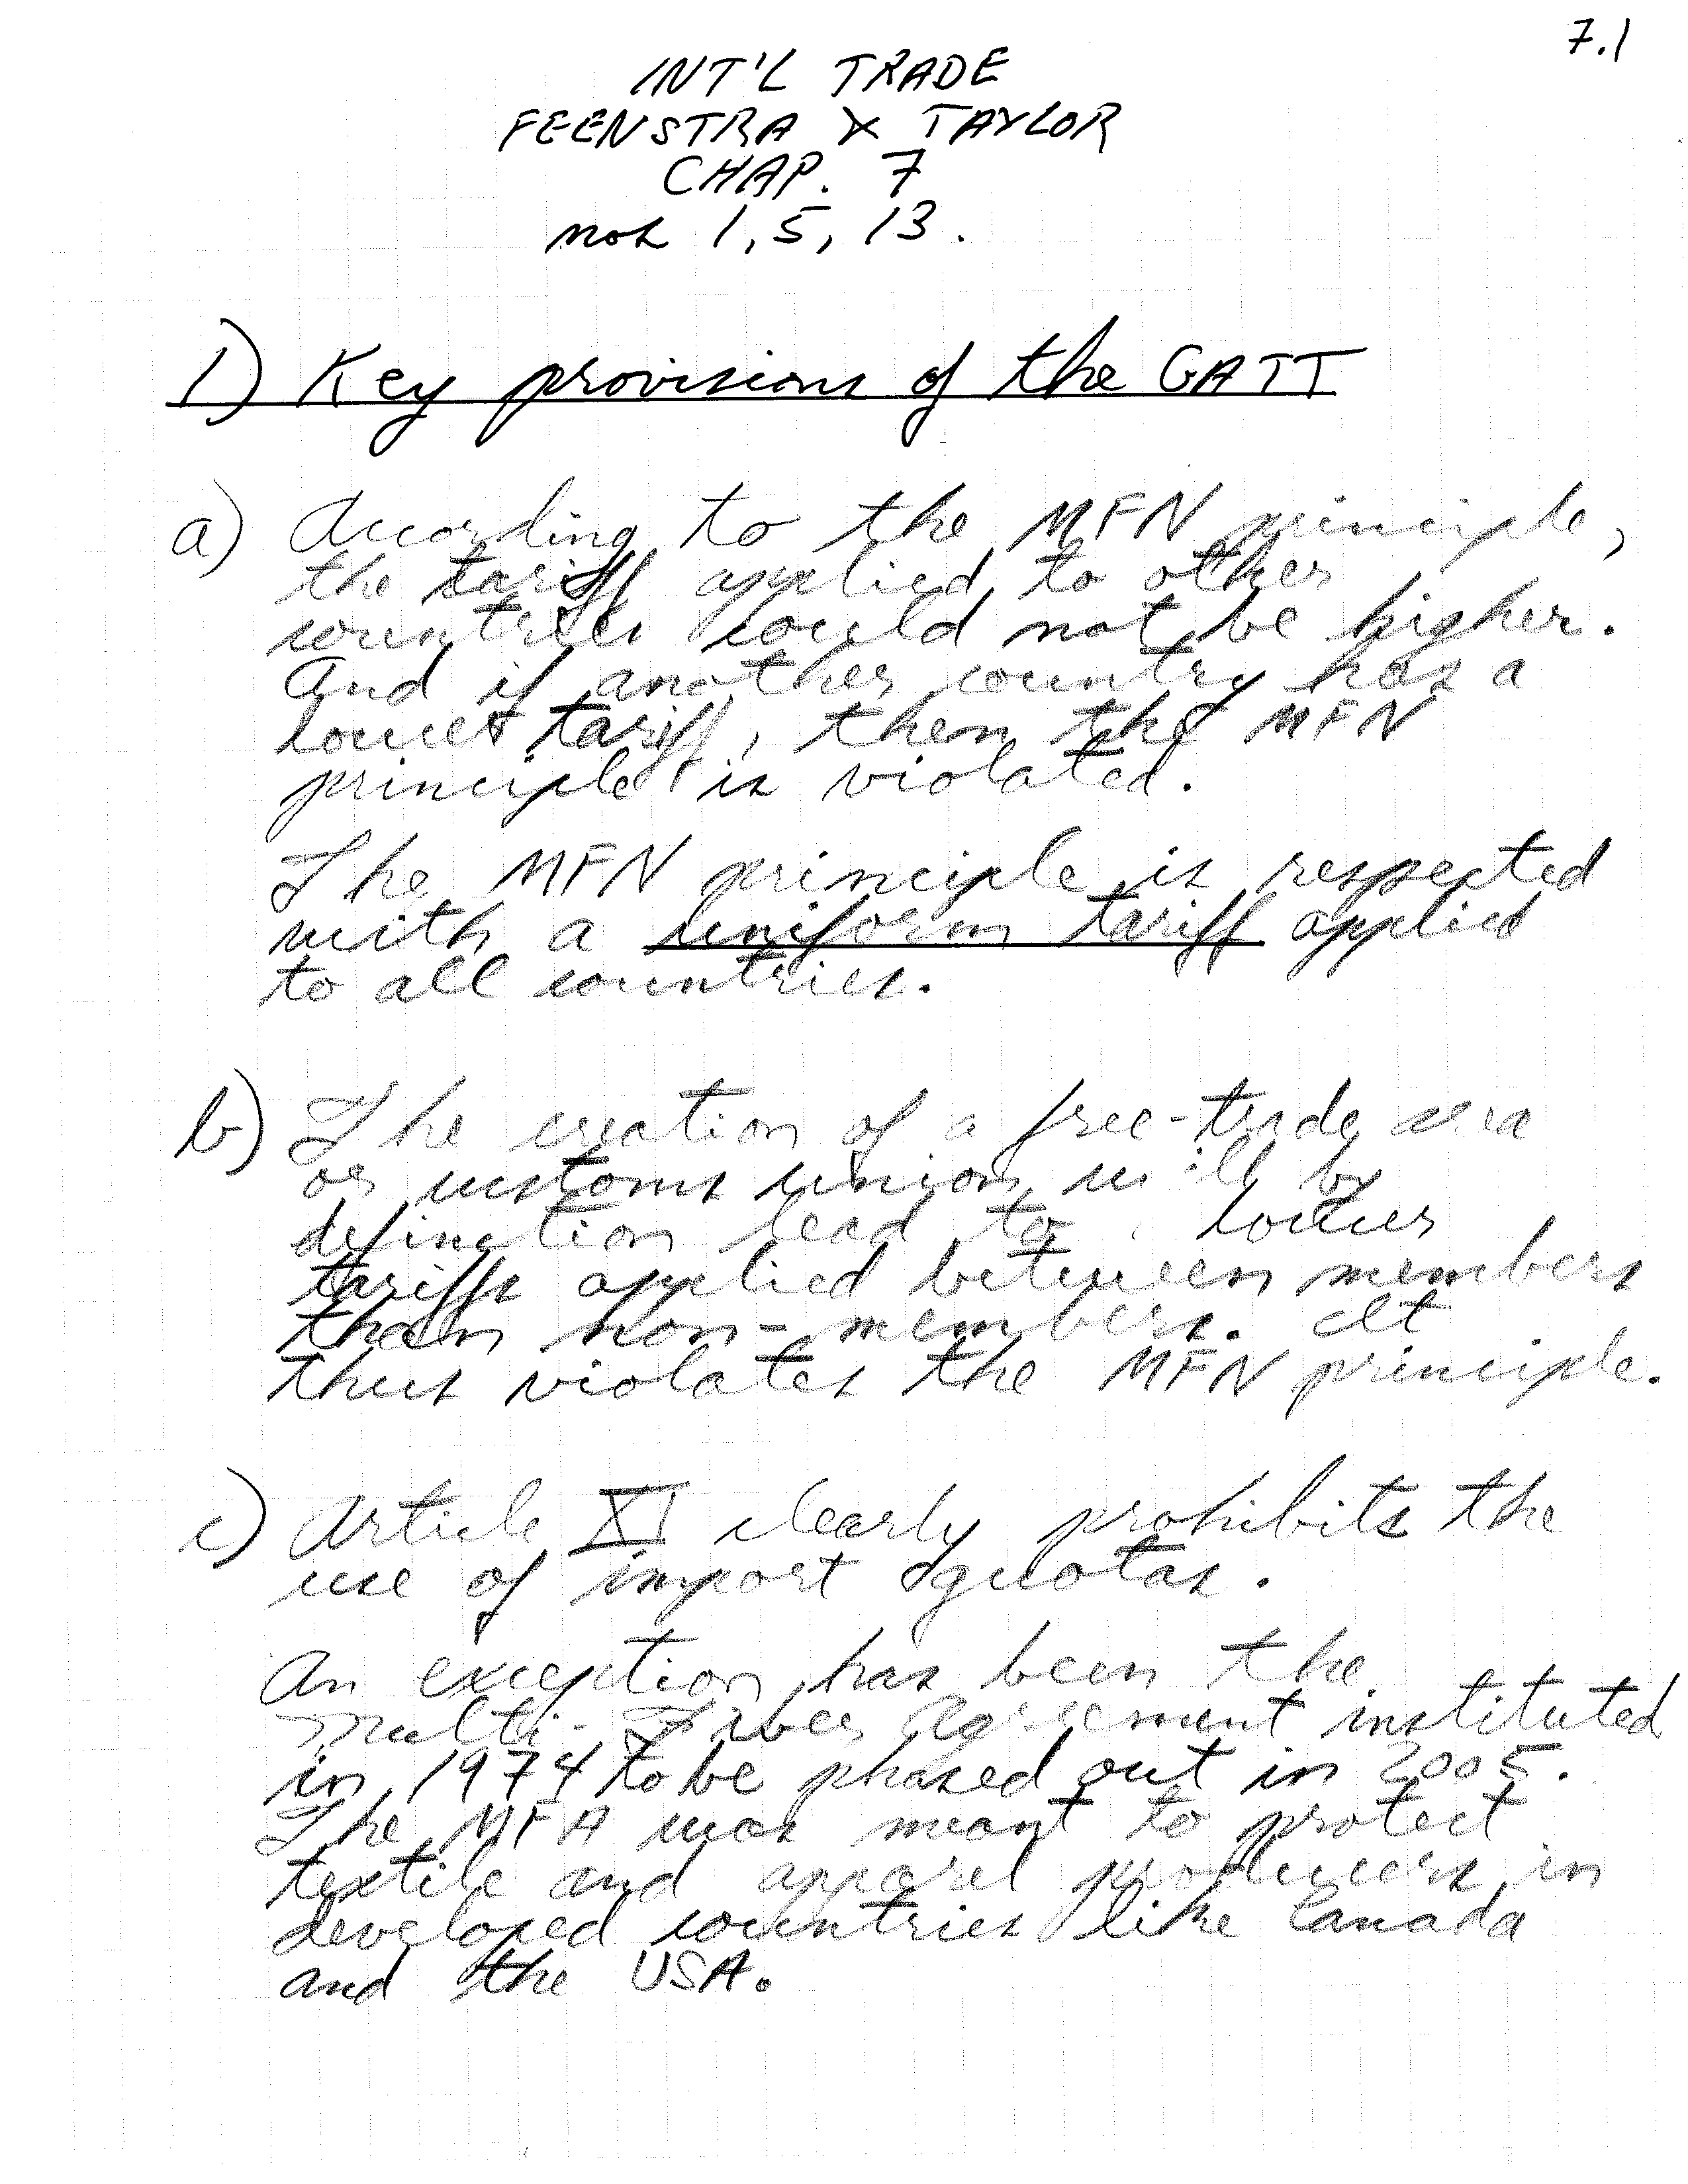 7.1
INT'L TRADE
FEENSTRA & TAYLOR
CHAP. 7
nos 1, 5, 13.
1) Key provisions of the GATT
a) According to the MFN principle,
the tariff applied to other
countries could not be higher.
And if another country has a
lower tariff, then the MFN
principle is violated.
The MFN principle is respected
with a uniform tariff applied
to all countries.
b) The creation of a free-trade area
or customs union will by
definition lead to lower
tariffs applied between members
than non-members. It
thus violates the MFN principle.
c) Article XI clearly prohibits the
use of import quotas.
An exception has been the
Multi-Fiber Agreement instituted
in 1974 to be phased out in 2005.
The MFA was meant to protect
textile and apparel producers in
developed countries like Canada
and the USA.